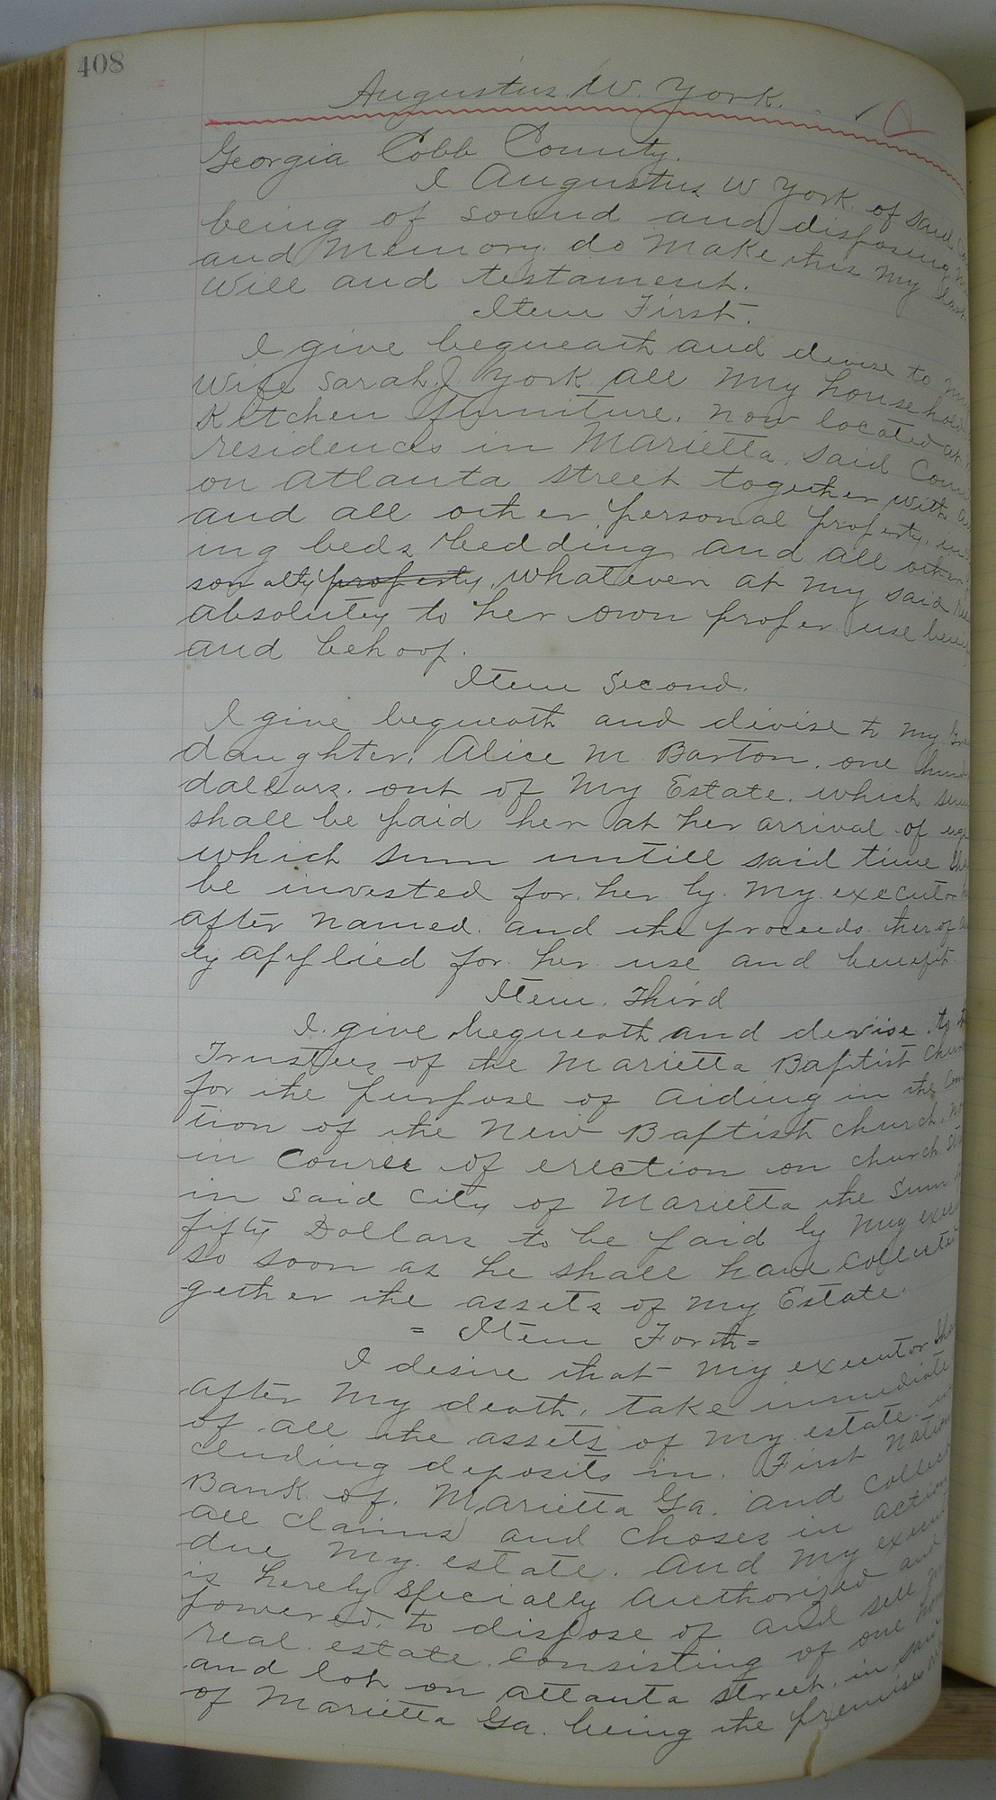 408
Augustus. W. York.
Georgia Cobb County.
I Augustus W York of said
being of sound and disposing
and memory do make this my last
will and testament.
Item First.
I give bequeath and devise to my
wife Sarah J York all my household
Kitchen furniture. now located at
residences in Marietta. said
on Atlanta street together with
and all other personal property.
ing beds bedding and all other
sonalty property, whatever at my said
absolutey to her own proper use
and behoof.
Item Second.
I give bequeath and divise to my
daughter, Alice M Barton. one
dallars. out of my Estate. which
shall be paid her at her arrival of
which sum untill said time
be invested for her by my executor
after named. and the proceeds therof
ly applied for her use and benefit.
Item. Third
I. give bequeath and devise. to
Trustees of the Marietta Baptist
for the purpose of aiding in the
tion of the New Baptist church.
in course of erection on church
in said City of Marietta the sum
fifty Dollars to be paid by my
so soon as he shall have collected
gether the assets of my Estate.
= Item Forth =
I desire that my executor
after my death, take immediate
of all the assets of my estate.
cluding deposits in. First
Bank of. Marietta Ga. and collect
all claims and choses in action
due my estate. And my
is hereby specially authorized and
powered. to dispose of and sell
real estate. consisting of one
and lot on Atlanta street, in
of Marietta Ga. being the premises